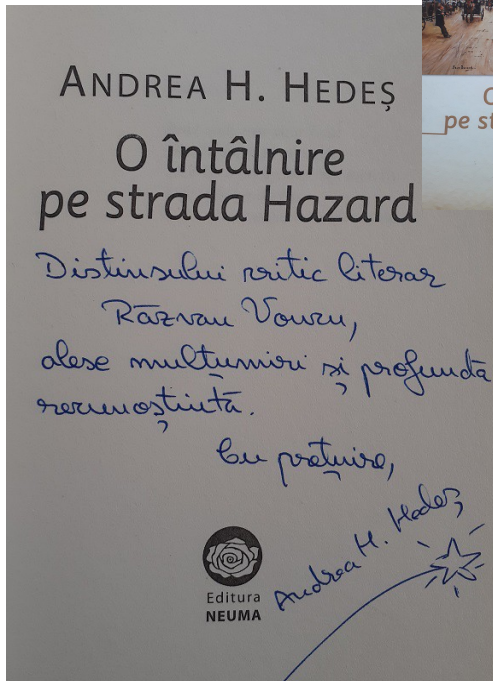 ANDREA H. HEDEȘ
O întâlnire
pe strada Hazard
O
pe st
Distinsului critic literar
Răzvan Voncu,
alese mulțumiri și profundă
recunoștință.
Cu prețuire,
Andrea H. Hedeș
Editura
NEUMA